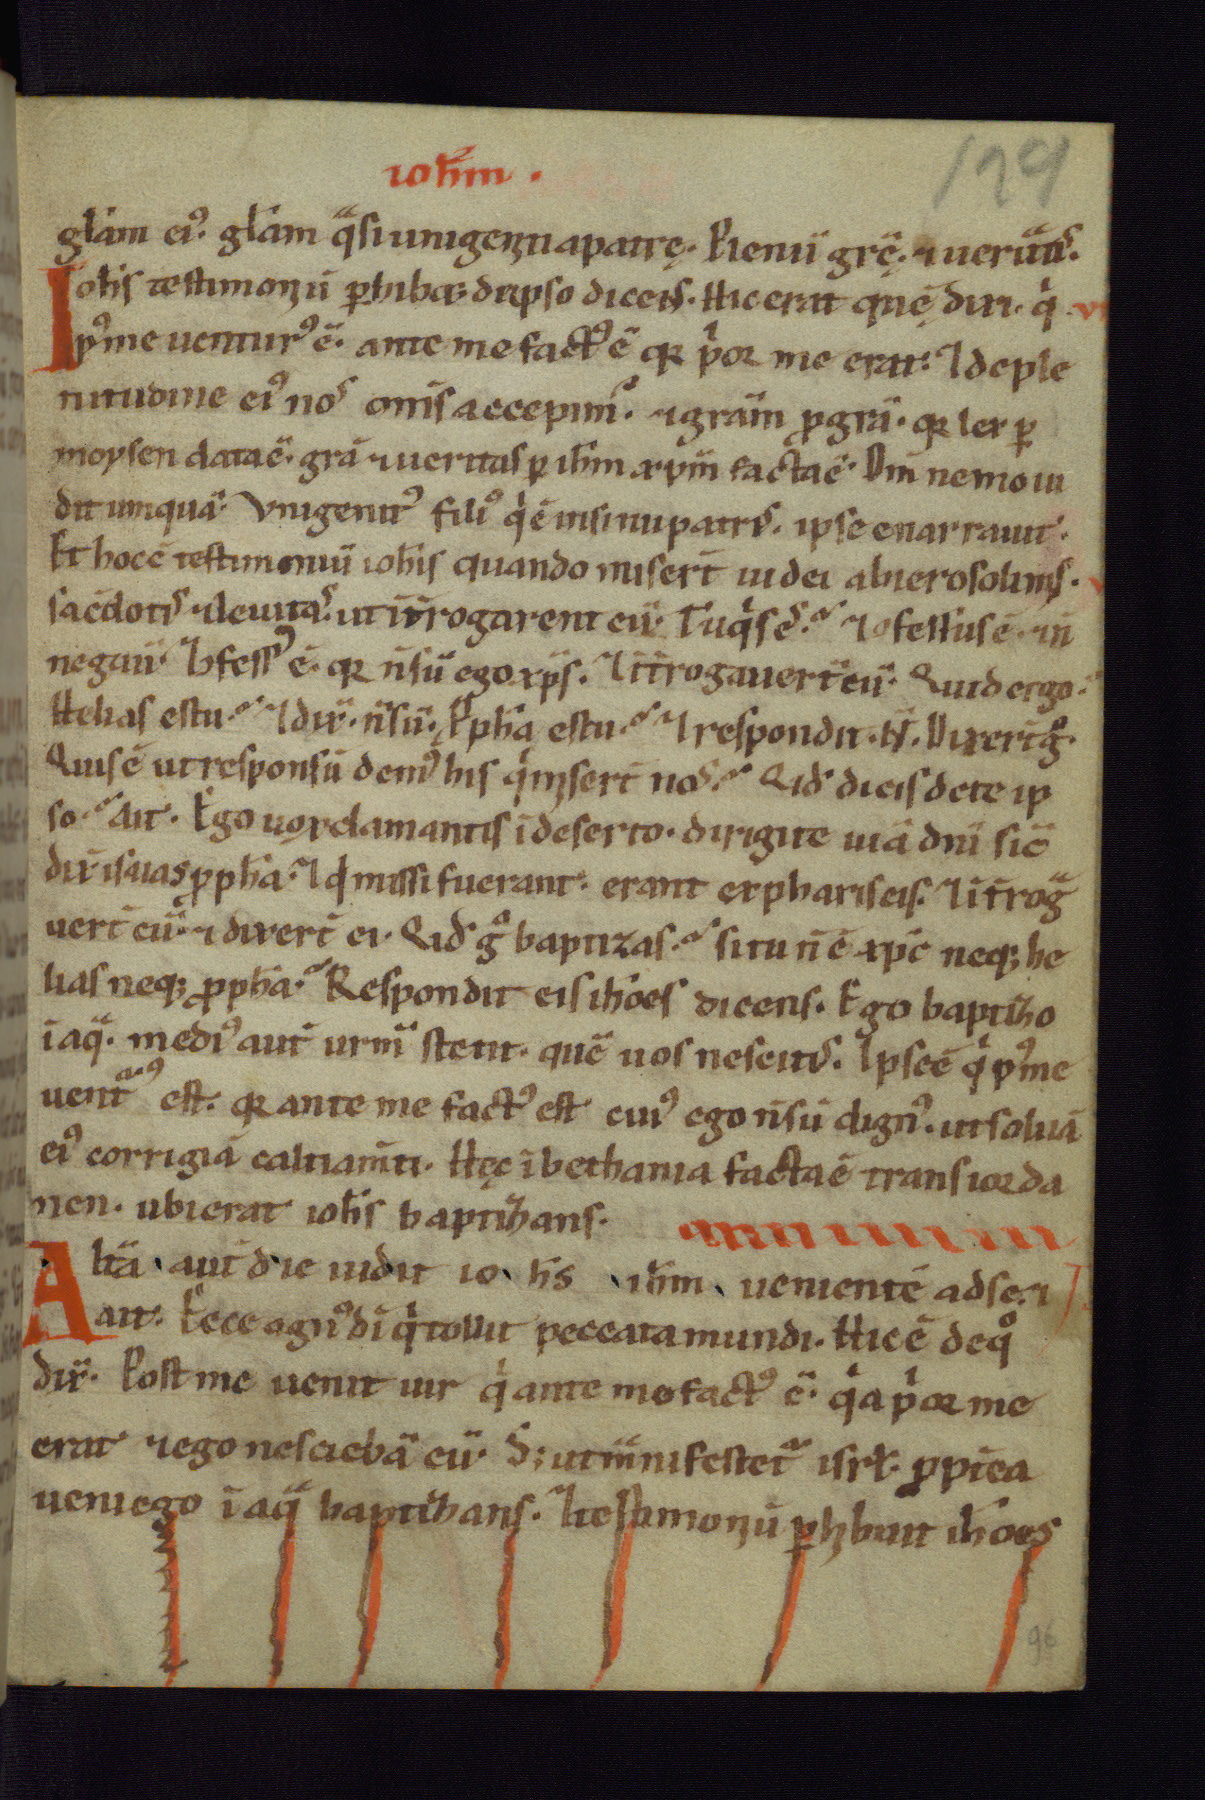 ioh̄m .
129
gl̄am ei᷒. gl̄am q̈si unigeniti a patrę. Plenū grę̄. ⁊ ueritatis.
Ioh̄is testimoniū ꝑhibet de ipso dicens. Hic erat quē dixi. qͥ vı
p᷒ me uentur᷒ ē. ante me fact᷒ ē qꝛ pͥor me erat. ⁊ de ple
nitudine ei᷒ nos om̄s accepim᷒. ⁊ grām ꝓ grā. qꝛ lex ꝑ
moysen data ē. grā ⁊ ueritas ꝑ ih̄m xp̄m facta ē. Dm̄ nemo ui
dit umquā. Vnigenit᷒ fili᷒ qͥ ē in sinu patris. ipse enarrauit.
Et hoc ē testimoniū ioh̄is quando misert̄ iudei ab ierosolimis.
sac̄dotes ⁊ leuitas. ut īt̄rogarent eū. Tu qͥs es. ⁊ ↄfessus ē. ⁊ n̄
negauit. ⁊ ↄfess᷒ ē. qꝛ n̄ sū ego xp̄s. ⁊ īt̄rogauert̄ eū. Quid ergo.
Helias es tu. ⁊ dix̄. n̄ sū. Ꝓph̄a es tu. ⁊ respondit. N̄. Dixert̄ gͦ.
Quis ē ut responsū dem᷒ his qͥ miserт̄ nos. Qid dicis de te ip
so. Ait. Ego uox clamantis ī deserto. dirigite uiā dn̄i sic̄
dix̄ isaias ꝓph̄a. ⁊ qͥ missi fuerant. erant ex phariseis. ⁊ īt̄roga
uert̄ eū. ⁊ dixert̄ ei. Qid gͦ baptizas. si tu n̄ ē xp̄c neq; he
lias neq; ꝓph̄a. Respondit eis ih̄oes dicens. Ego baptizo
ī aq̄. medi᷒ aut̄ urm̄ stetit. quē uos nescitis. Ipse ē qͥ p᷒ me
uentur᷒ est. qꝛ ante me fact᷒ est cui᷒ ego n̄ sū dign᷒. ut soluā
ei᷒ corrigiā caltiam̄ti. Hęc ī bethania facta ē trans iorda
nen. ubi erat ioh̄is baptizans.
Altā aut̄ die uidit io h̄s ih̄m uenientē ad se. ⁊
ait. Ecce agn᷒ dī qͥ tollit peccata mundi. Hic ē de qͦ
dix̄. Post me uenit uir qͥ ante me fact᷒ ē. qͥa pͥor me
erat ⁊ ego nesciebā eū. S; ut manifestet᷑ isrl̄. ꝓpt̄ea
ueni ego ī aq̄ baptizans. ⁊ testimoniū ꝑhibuit ih̄oes
96